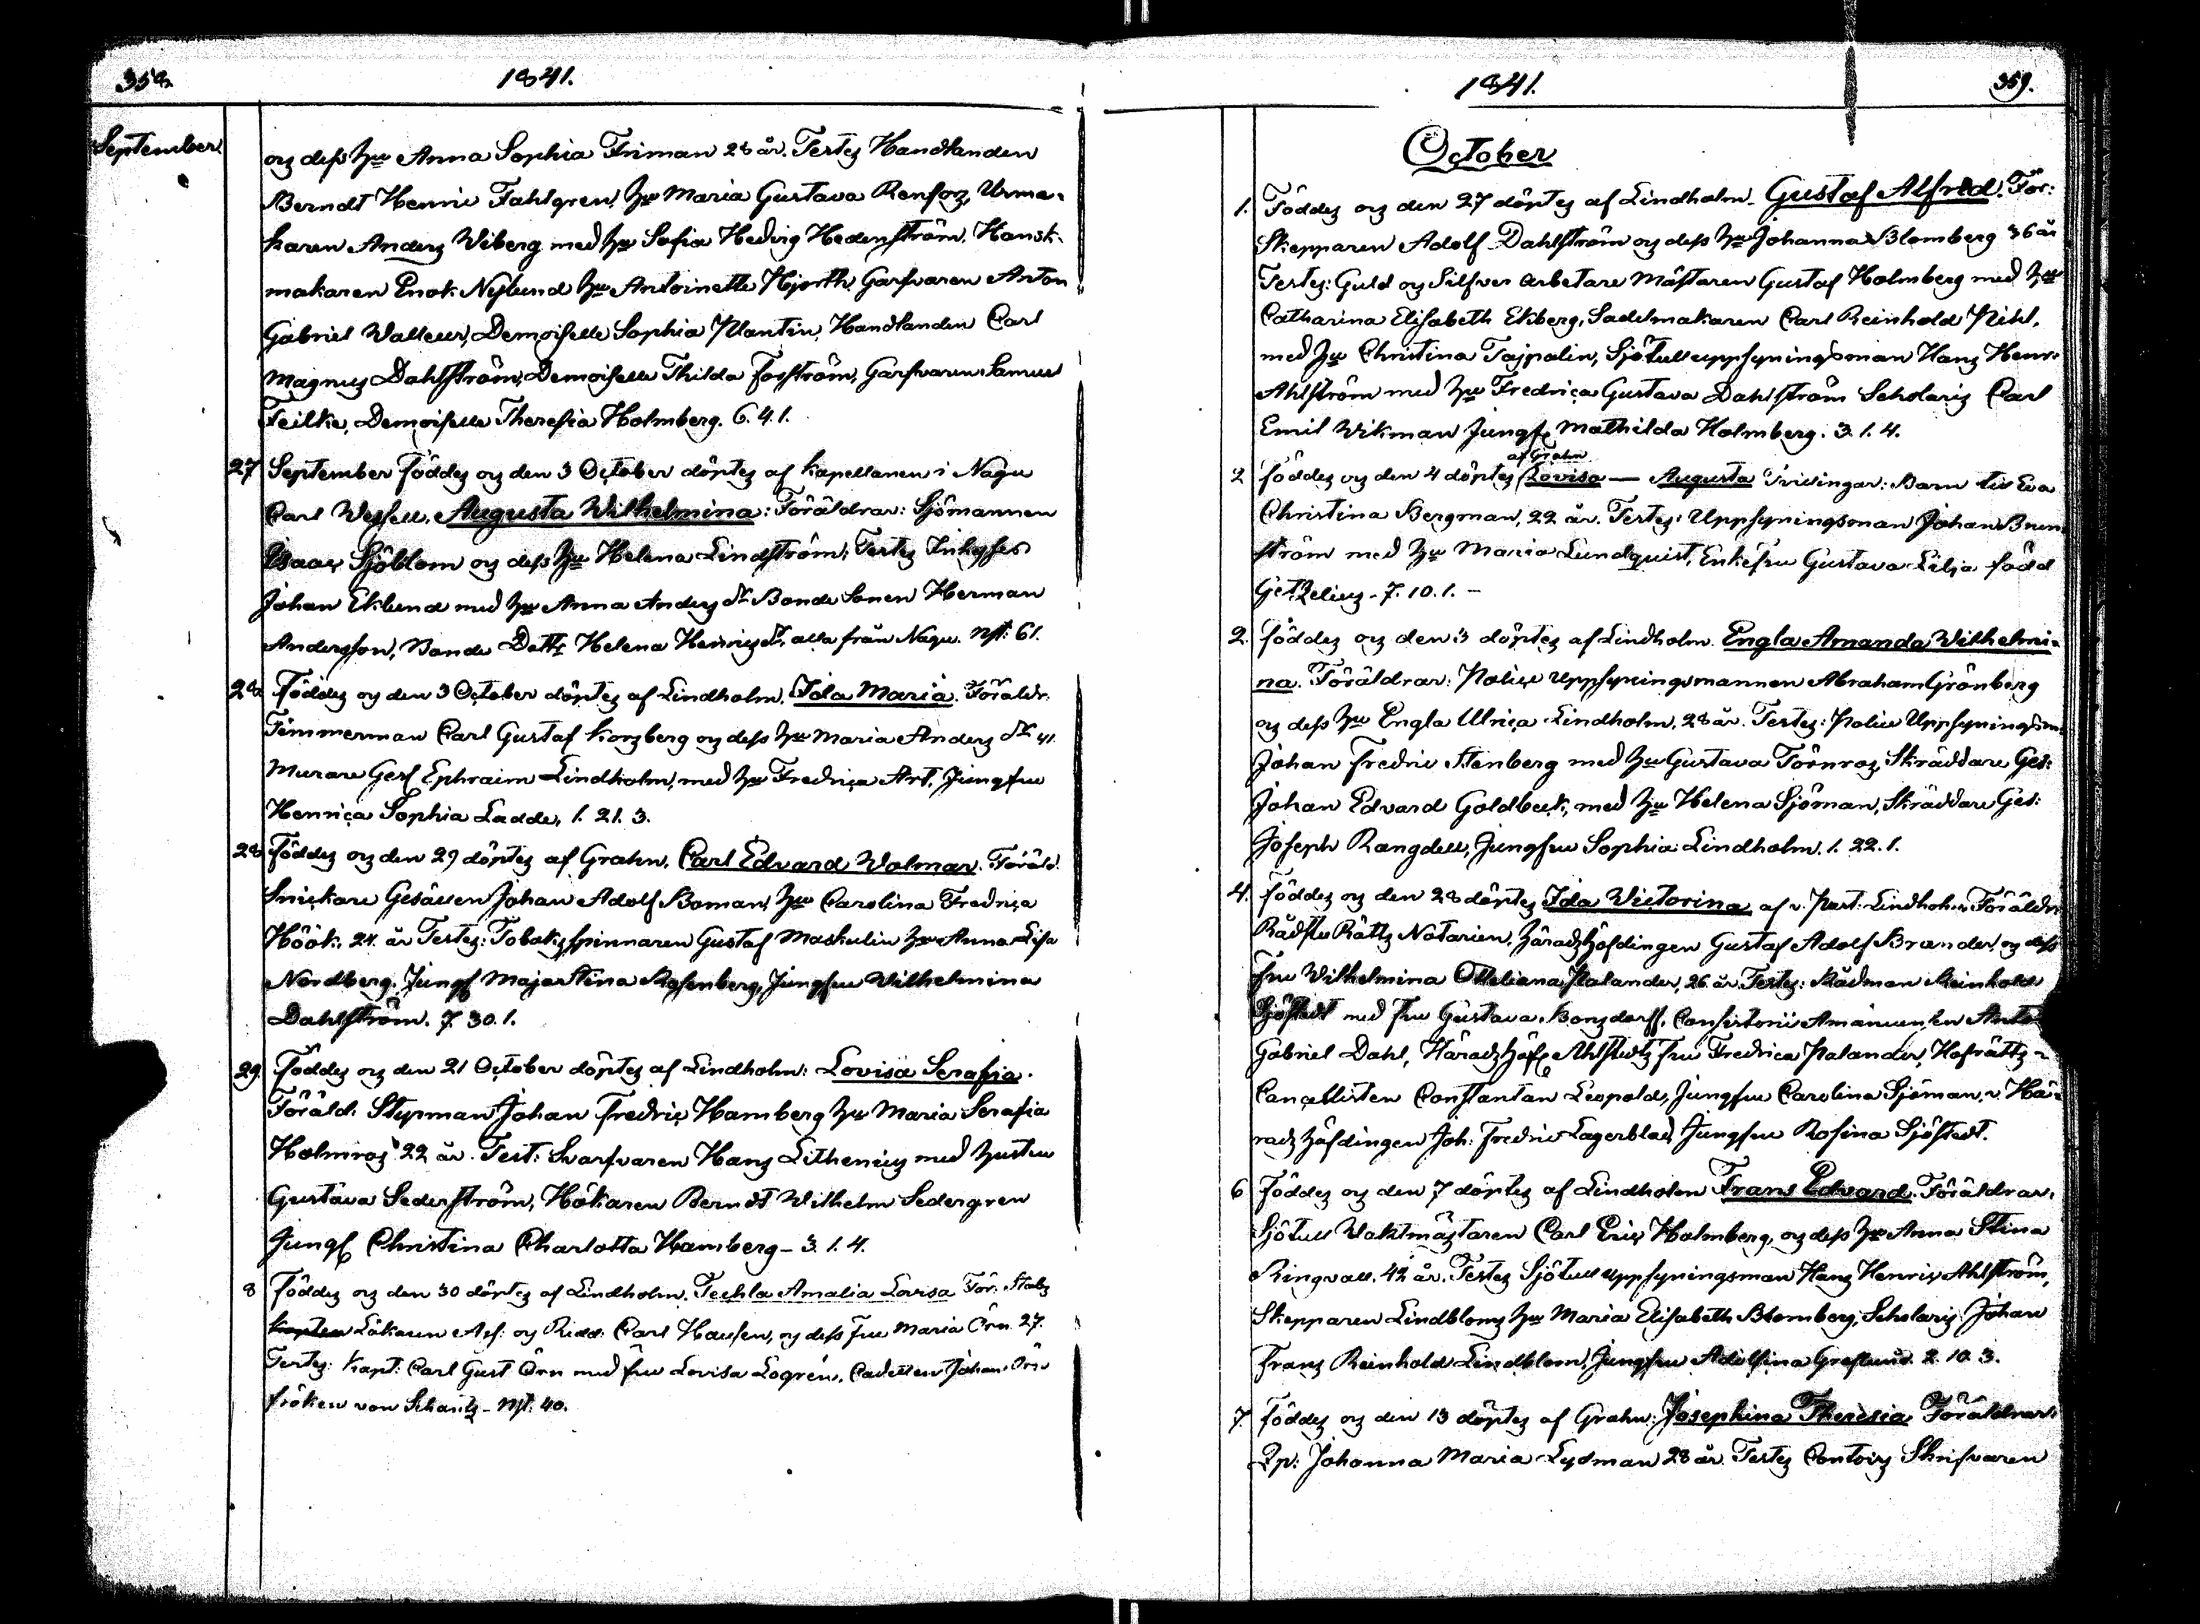 358.
1841.
September
och dess Hu Anna Sophia Friman 28 år. Testes Handlanden
Berndt Henric Fahlgren, Hu Maria Gustava Renfors, Urma-
karen Anders Wiberg med Hu Sofia Hedvig Hedenström. Handsk-
makaren Enok Nylund Hu Antoinette Hjorth, Garfvaren Anton
Gabriel Walleen, Demoiselle Sophia Plantin, Handlanden Carl
Magnus Dahlström, Demoiselle Thilda Forsström, Garfvaren Samuel
Teilke, Demoiselle Theresia Holmberg. 6. 4. 1.
27 September föddes och den 3 October döptes af kapellanen i Nagu
Carl Wessell, Augusta Wilhelmina: Föräldrar: Sjömannen
Isaac Sjöblom och dess Hu Helena Lindström; Testes Inhyses
Johan Eklund med Hu Anna Anders dr Bonde Sonen Herman
Andersson, Bonde Dottr Helena Henrics dr, alla från Nagu. Nst: 61.
28 föddes och den 3 October döptes af Lindholm, Ida Maria. Föräldr.
Timmerman Carl Gustaf Korsberg och dess Hu Maria Anders dr 41.
Murare Ges Ephraim Lindholm, med Hu Fredrica Art, Jungfru
Henrica Sophia Ladde, 1. 21. 3.
28 föddes och den 29 döptes af Grahn, Carl Edvard Wolmar. Föräld.
Snickare Gesällen Johan Adolf Boman, Hu Carolina Fredrica
Höök. 24. år Testes: Tobaksspinnaren Gustaf Maskulin Hu Anna Lisa
Nordberg, Jungf Maja Stina Rosenberg, Jungfru Wilhelmina
Dahlström. 7. 30. 1.
29. föddes och den 21 October döptes af Lindholm: Lovisa Serafia.
Föräld: Styrman Johan Fredric Hamberg Hu Maria Serafia
Holmros 22 år. Test: Svarfvaren Hans Lithenius med Hustru
Gustava Sederström, Hökaren Berndt Wilhelm Sedergren
Jungf Christina Charlotta Hamberg - 3. 1. 4.
8 föddes och den 30 döptes af Lindholm. Techla Amalia Lovisa För: Stabs
Läkaren Ass: och Ridd: Carl Hausen, och dess Fru Maria Örn 27.
Testes: Kapt: Carl Gust Örn med fru Lovisa Logrén, Cadetten Johan Örn
fröken von Schantz - Nst. 40.
1841.
359.
October
1. Föddes och den 27 döptes af Lindholm. Gustaf Alfred. För:
Skepparen Adolf Dahlström och dess Hu Johanna Blomberg 36 år
Testes: Guld och Silfver arbetare Mästaren Gustaf Holmberg med Hu
Catharina Elisabeth Ekberg, Sadelmakaren Carl Reinhold Pihl,
med Hu Christina Tajpalin, Sjötull uppsyningsman Hans Henr:
Ahlström med Hu Fredrica Gustava Dahlström Scholaris Carl
Emil Wikman Jungfr Mathilda Holmberg. 3. 1. 4.
af Grahn
2 föddes och den 4 döptes Lovisa — Augusta Tvillingar: Barn till Eva
Christina Bergman, 22 år. Testes: Uppsyningsman Johan Brun-
ström med Hu Maria Lundquist, Enkefru Gustava Lilja född
Getzelius - 7. 10. 1. -
2. föddes och den 3 döptes af Lindholm. Engla Amanda Wilhelmi-
na. Föräldrar: Police uppsyningsmannen Abraham Grönberg
och dess Hu Engla Ulrica Lindholm, 28 år. Testes: Police Uppsyningsm.
Johan Fredric Stenberg med Hu Gustava Törnros, Skräddare Ges:
Johan Edvard Goldbeck, med Hu Helena Sjöman, Skräddare Ges:
Joseph Rangdell, Jungfru Sophia Lindholm. 1. 22. 1.
4. föddes och den 28 döptes Ida Victorina af v. Past: Lindholm, Föräldr:
Rådstu Rätts Notarien, Häradshöfdingen Gustaf Adolf Brander, och dess
Fru Wilhelmina Otteliana Palander, 26 år. Testes: Rådman Reinhold
Sjöstedt med fru Gustava Bonsdorff, Consistorii Amanuensen Anto
Gabriel Dahl, Häradshöf Ahlstedts fru Fredrica Palander, Hofrätts-
Cancellisten Constantan Leopold, Jungfru Carolina Sjöman, v. Hä-
radshöfdingen Joh: Fredric Lagerblad, Jungfru Rosina Sjöstedt.
6 föddes och den 7 döptes af Lindholm Frans Edvard. Föräldrar:
Sjötull Waktmästaren Carl Eric Holmberg, och dess Hu Anna Stina
Ringvall. 42 år. Testes Sjötull uppsyningsman Hans Henric Ahlström,
Skepparen Lindbloms Hu Maria Elisabeth Blomberg, Scholaris Johan
Frans Reinhold Lindblom, Jungfru Adolfina Greslund. 2. 10. 3.
7. föddes och den 13 döptes af Grahn: Josephina Theresia Föräldrar:
Qp: Johanna Maria Lydman 28 år. Testes Contoirs Skrifvaren